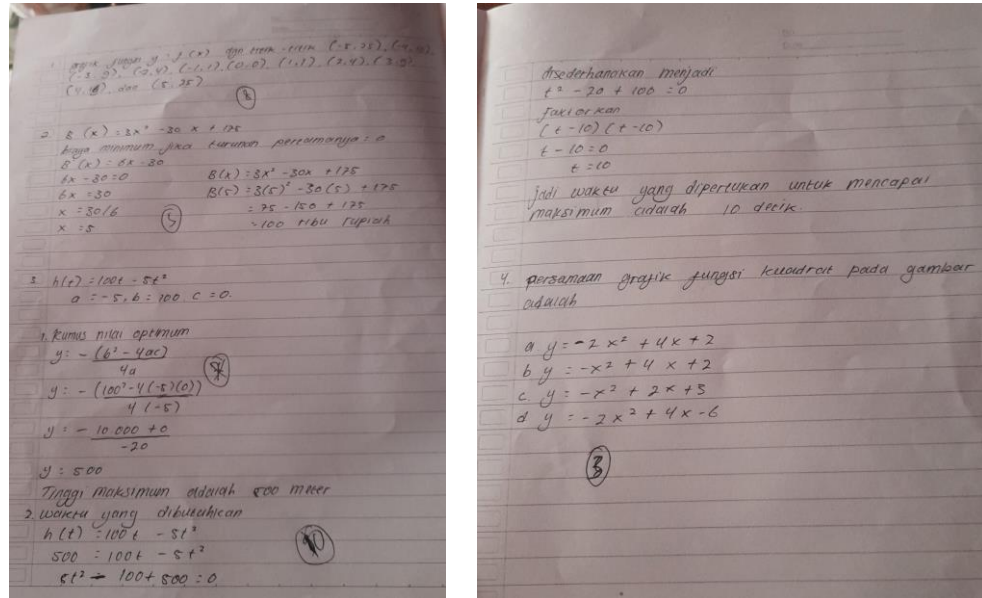 1. grafik fungsi y = f(x) dgn titik-titik (-5,25), (-4,16),
(-3,9), (-2,4), (-1,1), (0,0), (1,1), (2,4), (3,9),
(4,16), dan (5,25)
2. B(x) = 3x² - 30x + 175
biaya minimum jika turunan pertamanya = 0
B'(x) = 6x - 30
6x - 30 = 0 B(x) = 3x² - 30x + 175
6x = 30 B(5) = 3(5)² - 30(5) + 175
x = 30/6 = 75 - 150 + 175
x = 5 5 = 100 ribu rupiah
3. h(t) = 100t - 5t²
a = -5, b = 100, c = 0.
1. Rumus nilai optimum
y = - (b² - 4ac)
4a
y = - (100² - 4(-5)(0))
4(-5)
y = - 10.000 + 0
-20
y = 500
Tinggi maksimum adalah 500 meter
2. waktu yang dibutuhkan
h(t) = 100t - 5t²
500 = 100t - 5t²
5t² - 100t 500 = 0
disederhanakan menjadi
t² - 20 + 100 = 0
faktorkan
(t - 10) (t - 10)
t - 10 = 0
t = 10
jadi waktu yang diperlukan untuk mencapai
maksimum adalah 10 detik.
4. persamaan grafik fungsi kuadrat pada gambar
adalah
a y = -2x² + 4x + 2
b y = -x² + 4x + 2
c. y = -x² + 2x + 3
d y = -2x² + 4x - 6
3